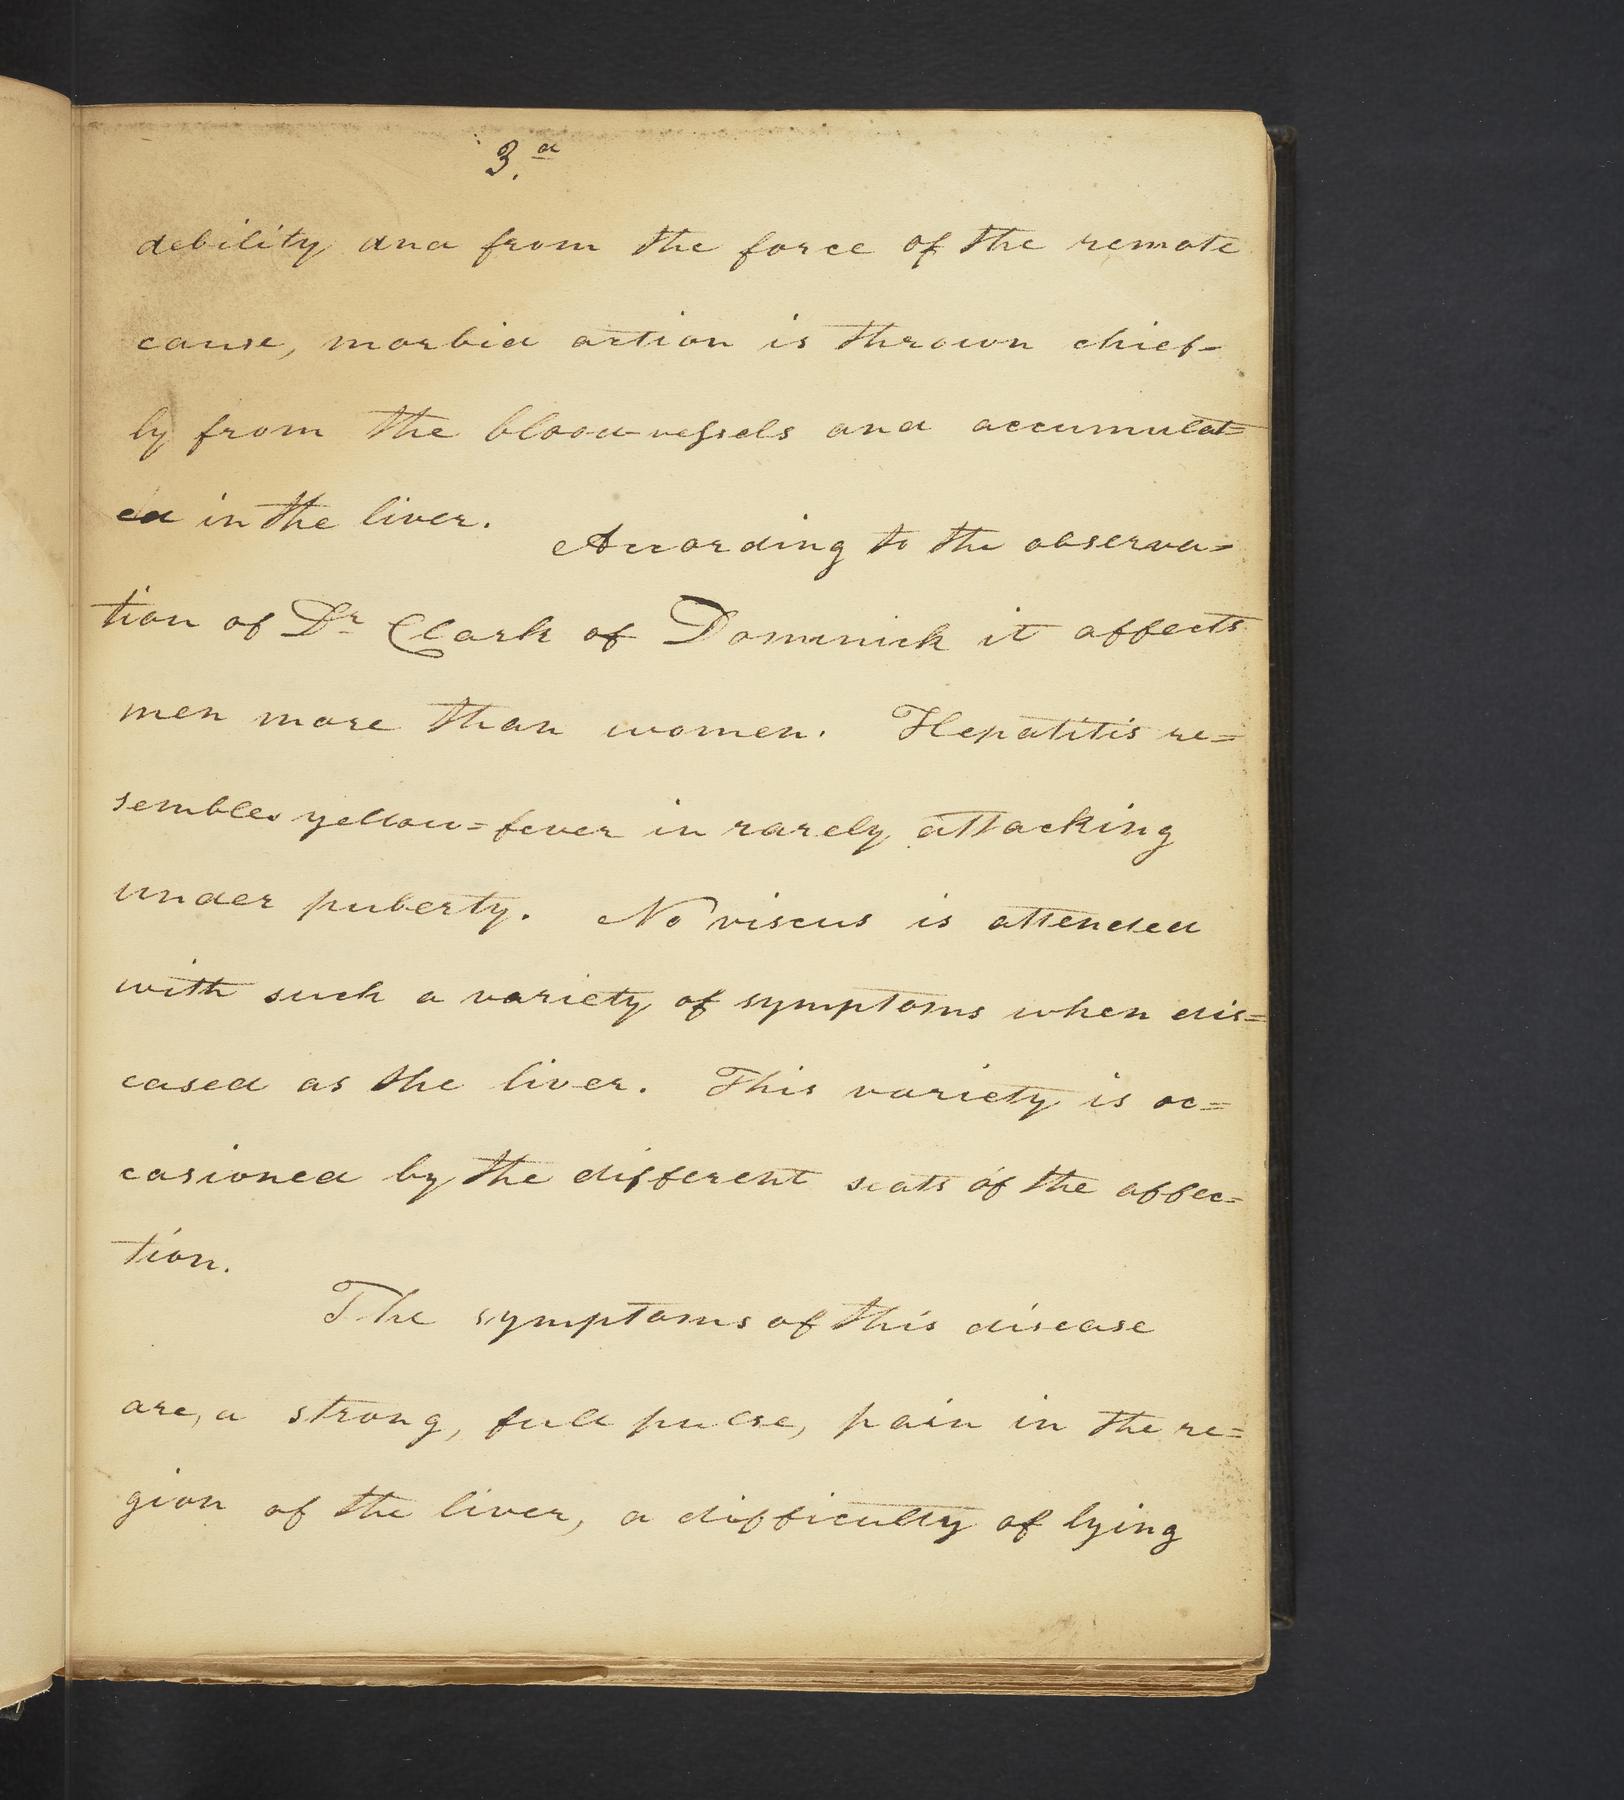 3.d
debility and from the force of the remote
cause, morbid action is thrown chief-
ly from the blood-vessels and accumulat=
ed in the liver.
According to the observa=
tion of Dr Clark of Dominick it affects
men more than women. Hepatitis re=
sembles yellow=fever in rarely attacking
under puberty. No viscus is attended
with such a variety of symptoms when dis=
eased as the liver. This variety is oc=
casioned by the different seats of the affec=
tion.
The symptoms of this disease
are, a strong, full pulse, pain in the re=
gion of the liver, a difficulty of lying